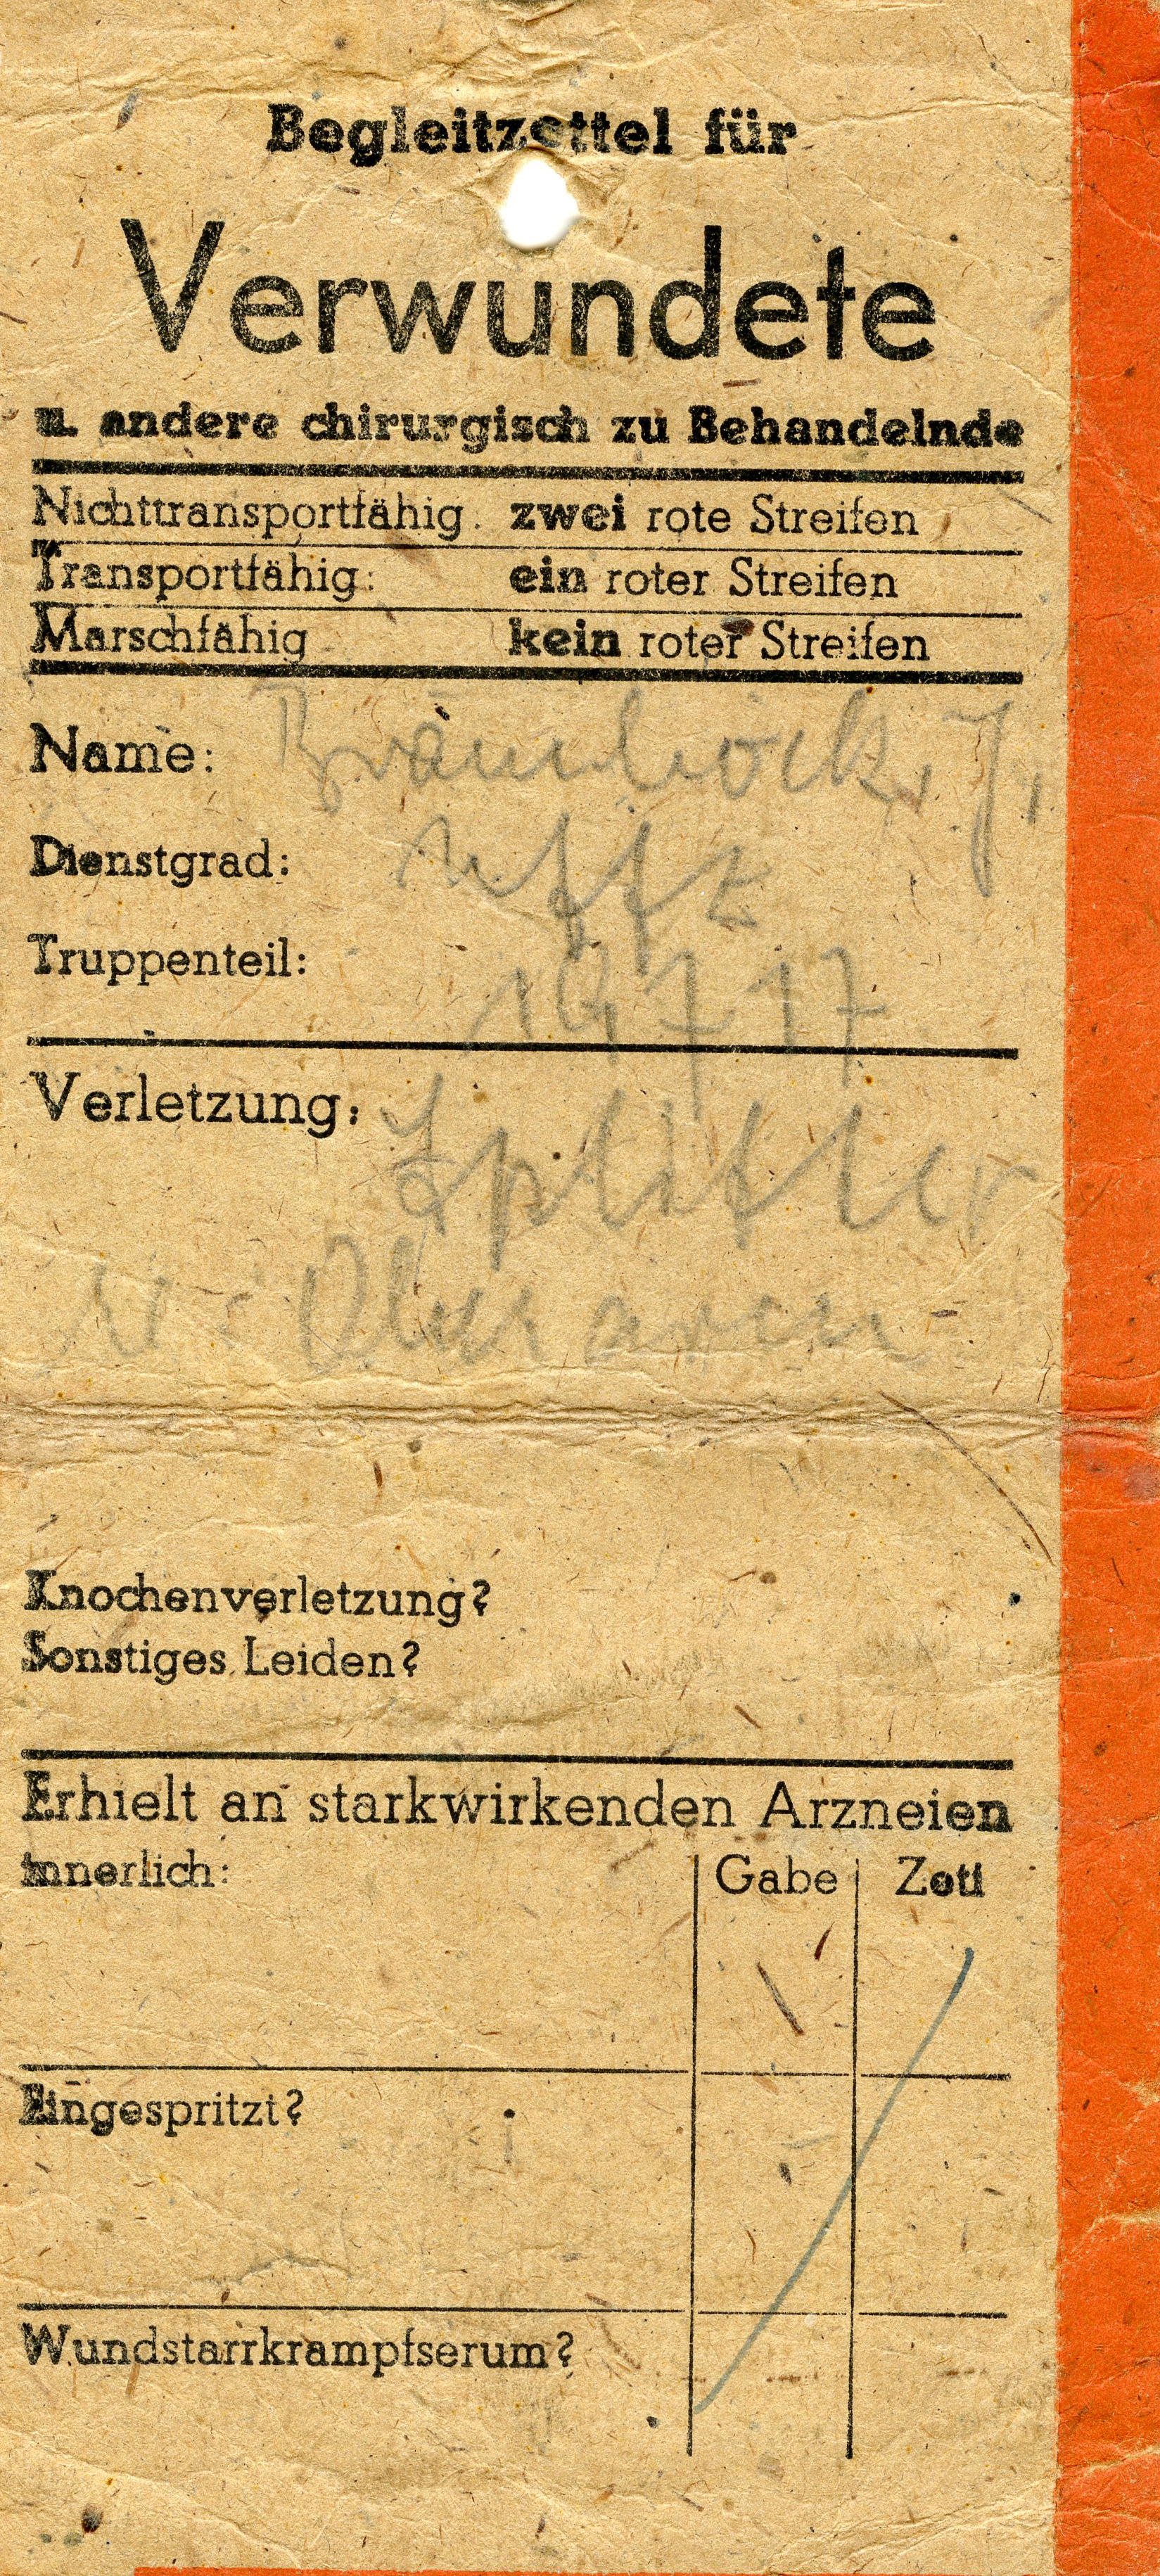 Begleitzettel für
Verwundete
u. andere chirurgisch zu Behandelnde
Nichttransportfähig: zwei rote Streifen
Transportfähig: ein roter Streifen
Marschfähig kein roter Streifen
Name: J.
Dienstgrad: Uffz
Truppenteil: 14717
Verletzung: Splitter
Oberarm
Knochenverletzung?
Sonstiges Leiden?
Erhielt an starkwirkenden Arzneien
Innerlich: Gabe Zeit
Eingespritzt?
Wundstarrkrampfserum?